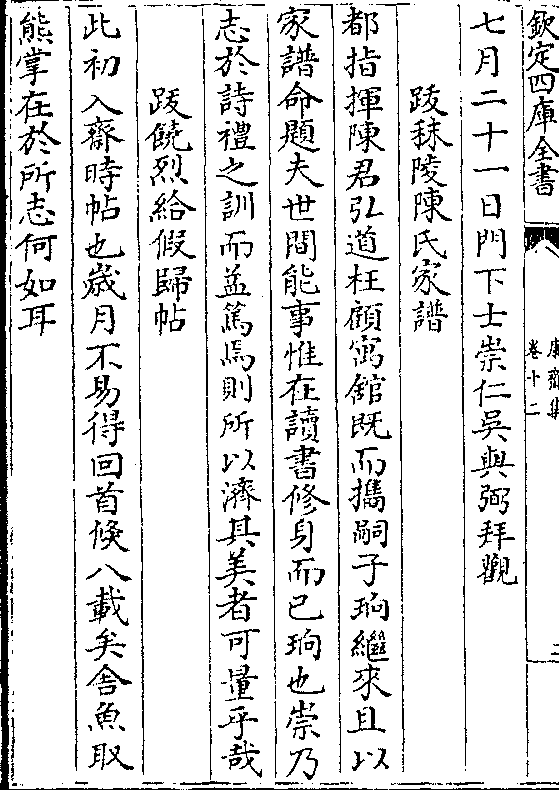 欽定四庫全書
康齋集
卷十二
二
七月二十一日門下士崇仁吳與弼拜觀
跋秣陵陳氏家譜
都指揮陳君弘道枉顧寓舘既而攜嗣子珦繼來且以
家譜命題夫世間能事惟在讀書修身而已珦也崇乃
志於詩禮之訓而益篤焉則所以濟其美者可量乎哉
跋饒烈給假歸帖
此初入齋時帖也歲月不易得回首倏八載矣舍魚取
熊掌在於所志何如耳